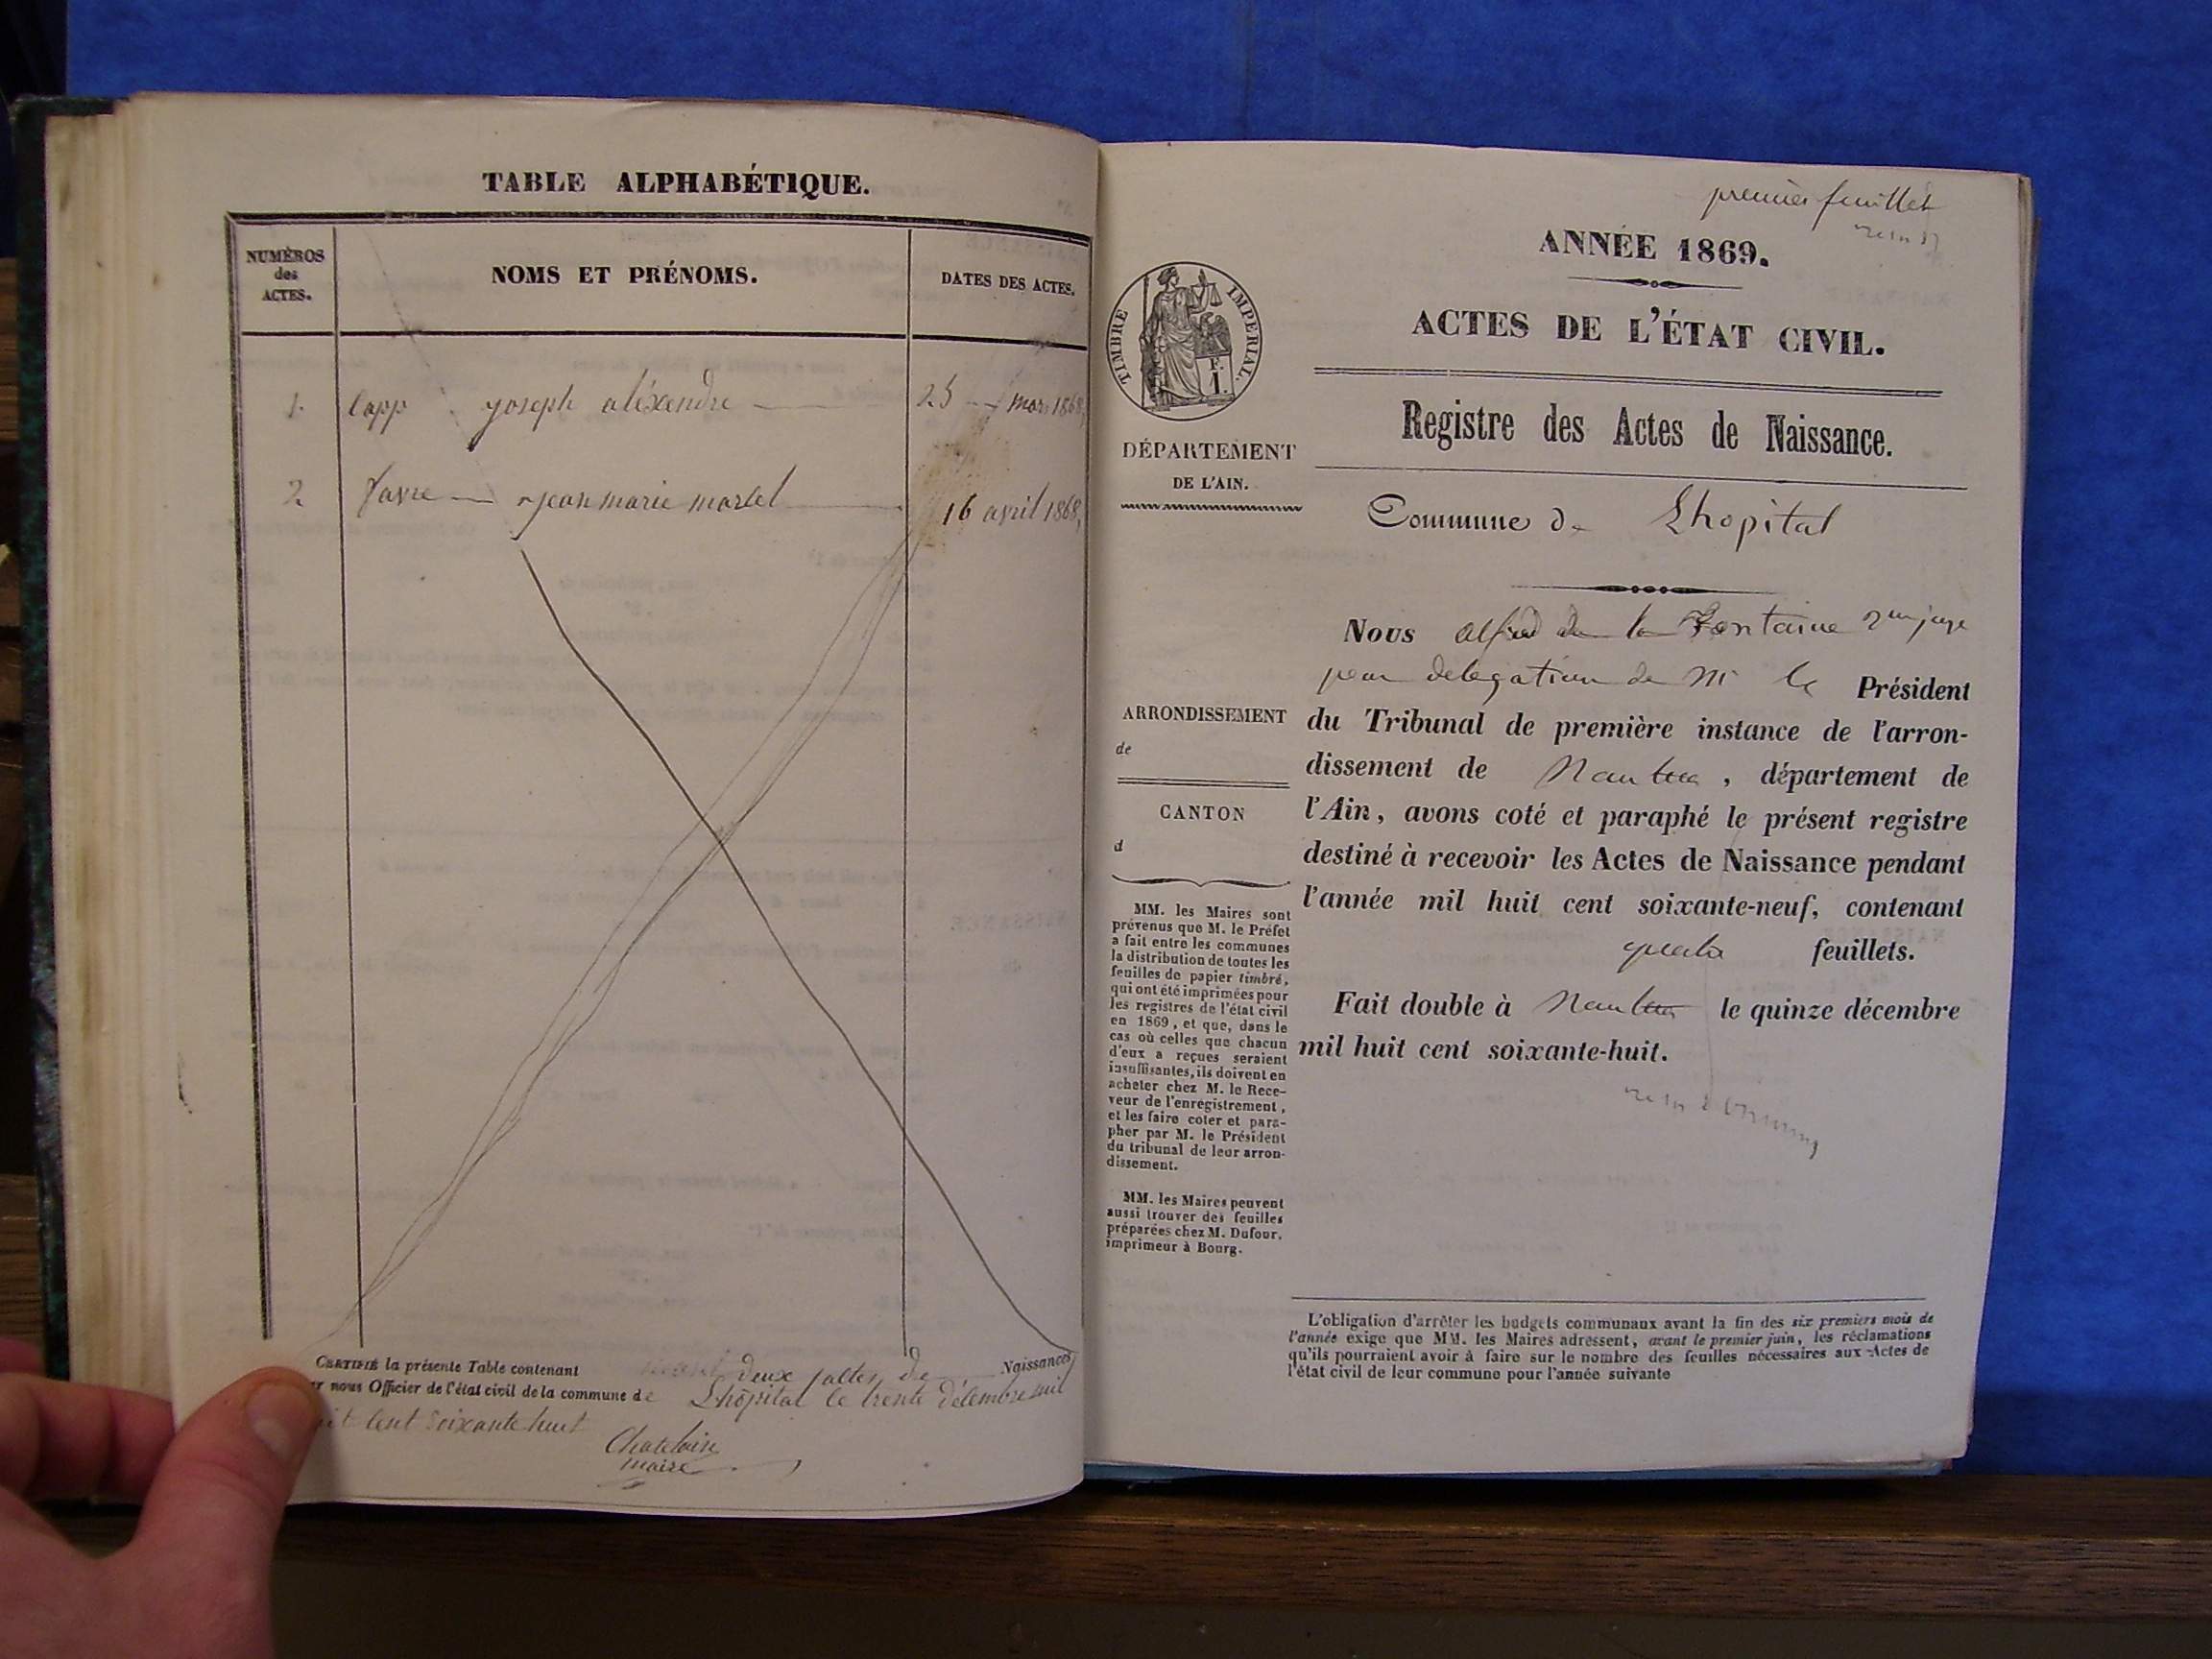 TABLE ALPHABÉTIQUE.
NUMÉROS
des
ACTES.
NOMS ET PRÉNOMS.
DATES DES ACTES.
1. Capp joseph aléxandre 25 mars 1868,
2 favre jean marie martel 16 avril 1868,
CERTIFIÉ la présente Table contenant deux actes de Naissances
nous Officier de l'état civil de la commune de Lhôpital le trente décembre mil
cent soixante huit
Chatelain
maire
premier feuillet
ANNÉE 1869.
ACTES DE L'ÉTAT CIVIL.
TIMBRE IMPERIAL.
F.
1.
DÉPARTEMENT
DE L'AIN.
Registre des Actes de Naissance.
Commune de Lhopital
Nous alfred de la Fontaine juge
pour delegation de Mr le Président
du Tribunal de première instance de l'arron-
dissement de Nantua, département de
l'Ain, avons coté et paraphé le présent registre
destiné à recevoir les Actes de Naissance pendant
l'année mil huit cent soixante-neuf, contenant
quatre feuillets.
Fait double à Nantua le quinze décembre
mil huit cent soixante-huit.
ARRONDISSEMENT
de
CANTON
d
MM. les Maires sont
prévenus que M. le Préfet
a fait entre les communes
la distribution de toutes les
feuilles de papier timbré,
qui ont été imprimées pour
les registres de l'état civil
en 1869, et que, dans le
cas où celles que chacun
d'eux a reçues seraient
insuffisantes, ils doivent en
acheter chez M. le Rece-
veur de l'enregistrement,
et les faire coter et para-
pher par M. le Président
du tribunal de leur arron-
dissement.
MM. les Maires peuvent
aussi trouver des feuilles
préparées chez M. Dufour,
imprimeur à Bourg.
L'obligation d'arrêter les budgets communaux avant la fin des six premiers mois de
l'année exige que MM. les Maires adressent, avant le premier juin, les réclamations
qu'ils pourraient avoir à faire sur le nombre des feuilles nécessaires aux Actes de
l'état civil de leur commune pour l'année suivante